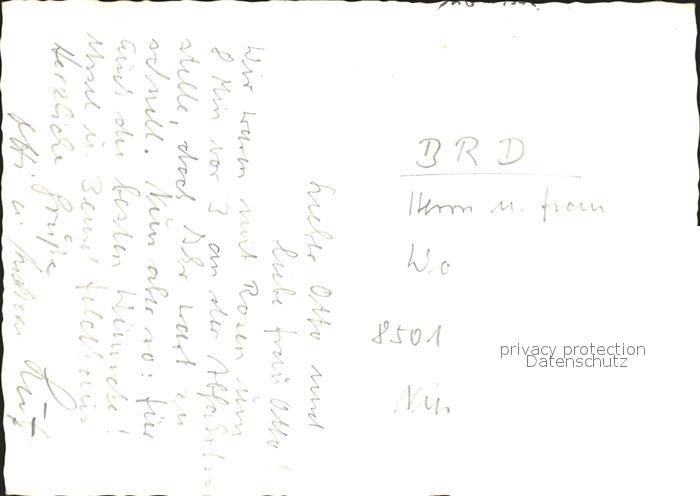 Lieber Otto und
liebe Frau Otto!
Wir waren mit Rosen um
8 Min vor 3 an der Abfahrts
stelle, doch Ihr wart zu
schnell. Nun aber so: für
Euch die besten Wünsche!
u. Bernd
Herzliche Grüße
BRD
Herrn u. Frau
Wo
8501
privacy protection
Datenschutz